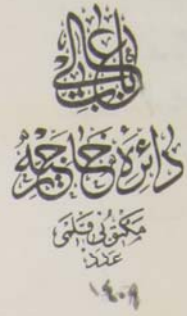 باب عالی
دائرهٔ خارجیه
مكتوبی قلمی
عدد
١٤٠٩